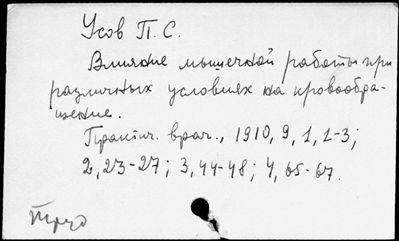 Усов П. С.
Влияние мышечной работы при
различных условиях на кровообра-
щение.
Практич. врач., 1910, 9, 1, 1-3;
2, 23-27; 3, 44-48; 4, 65-67.
Труд